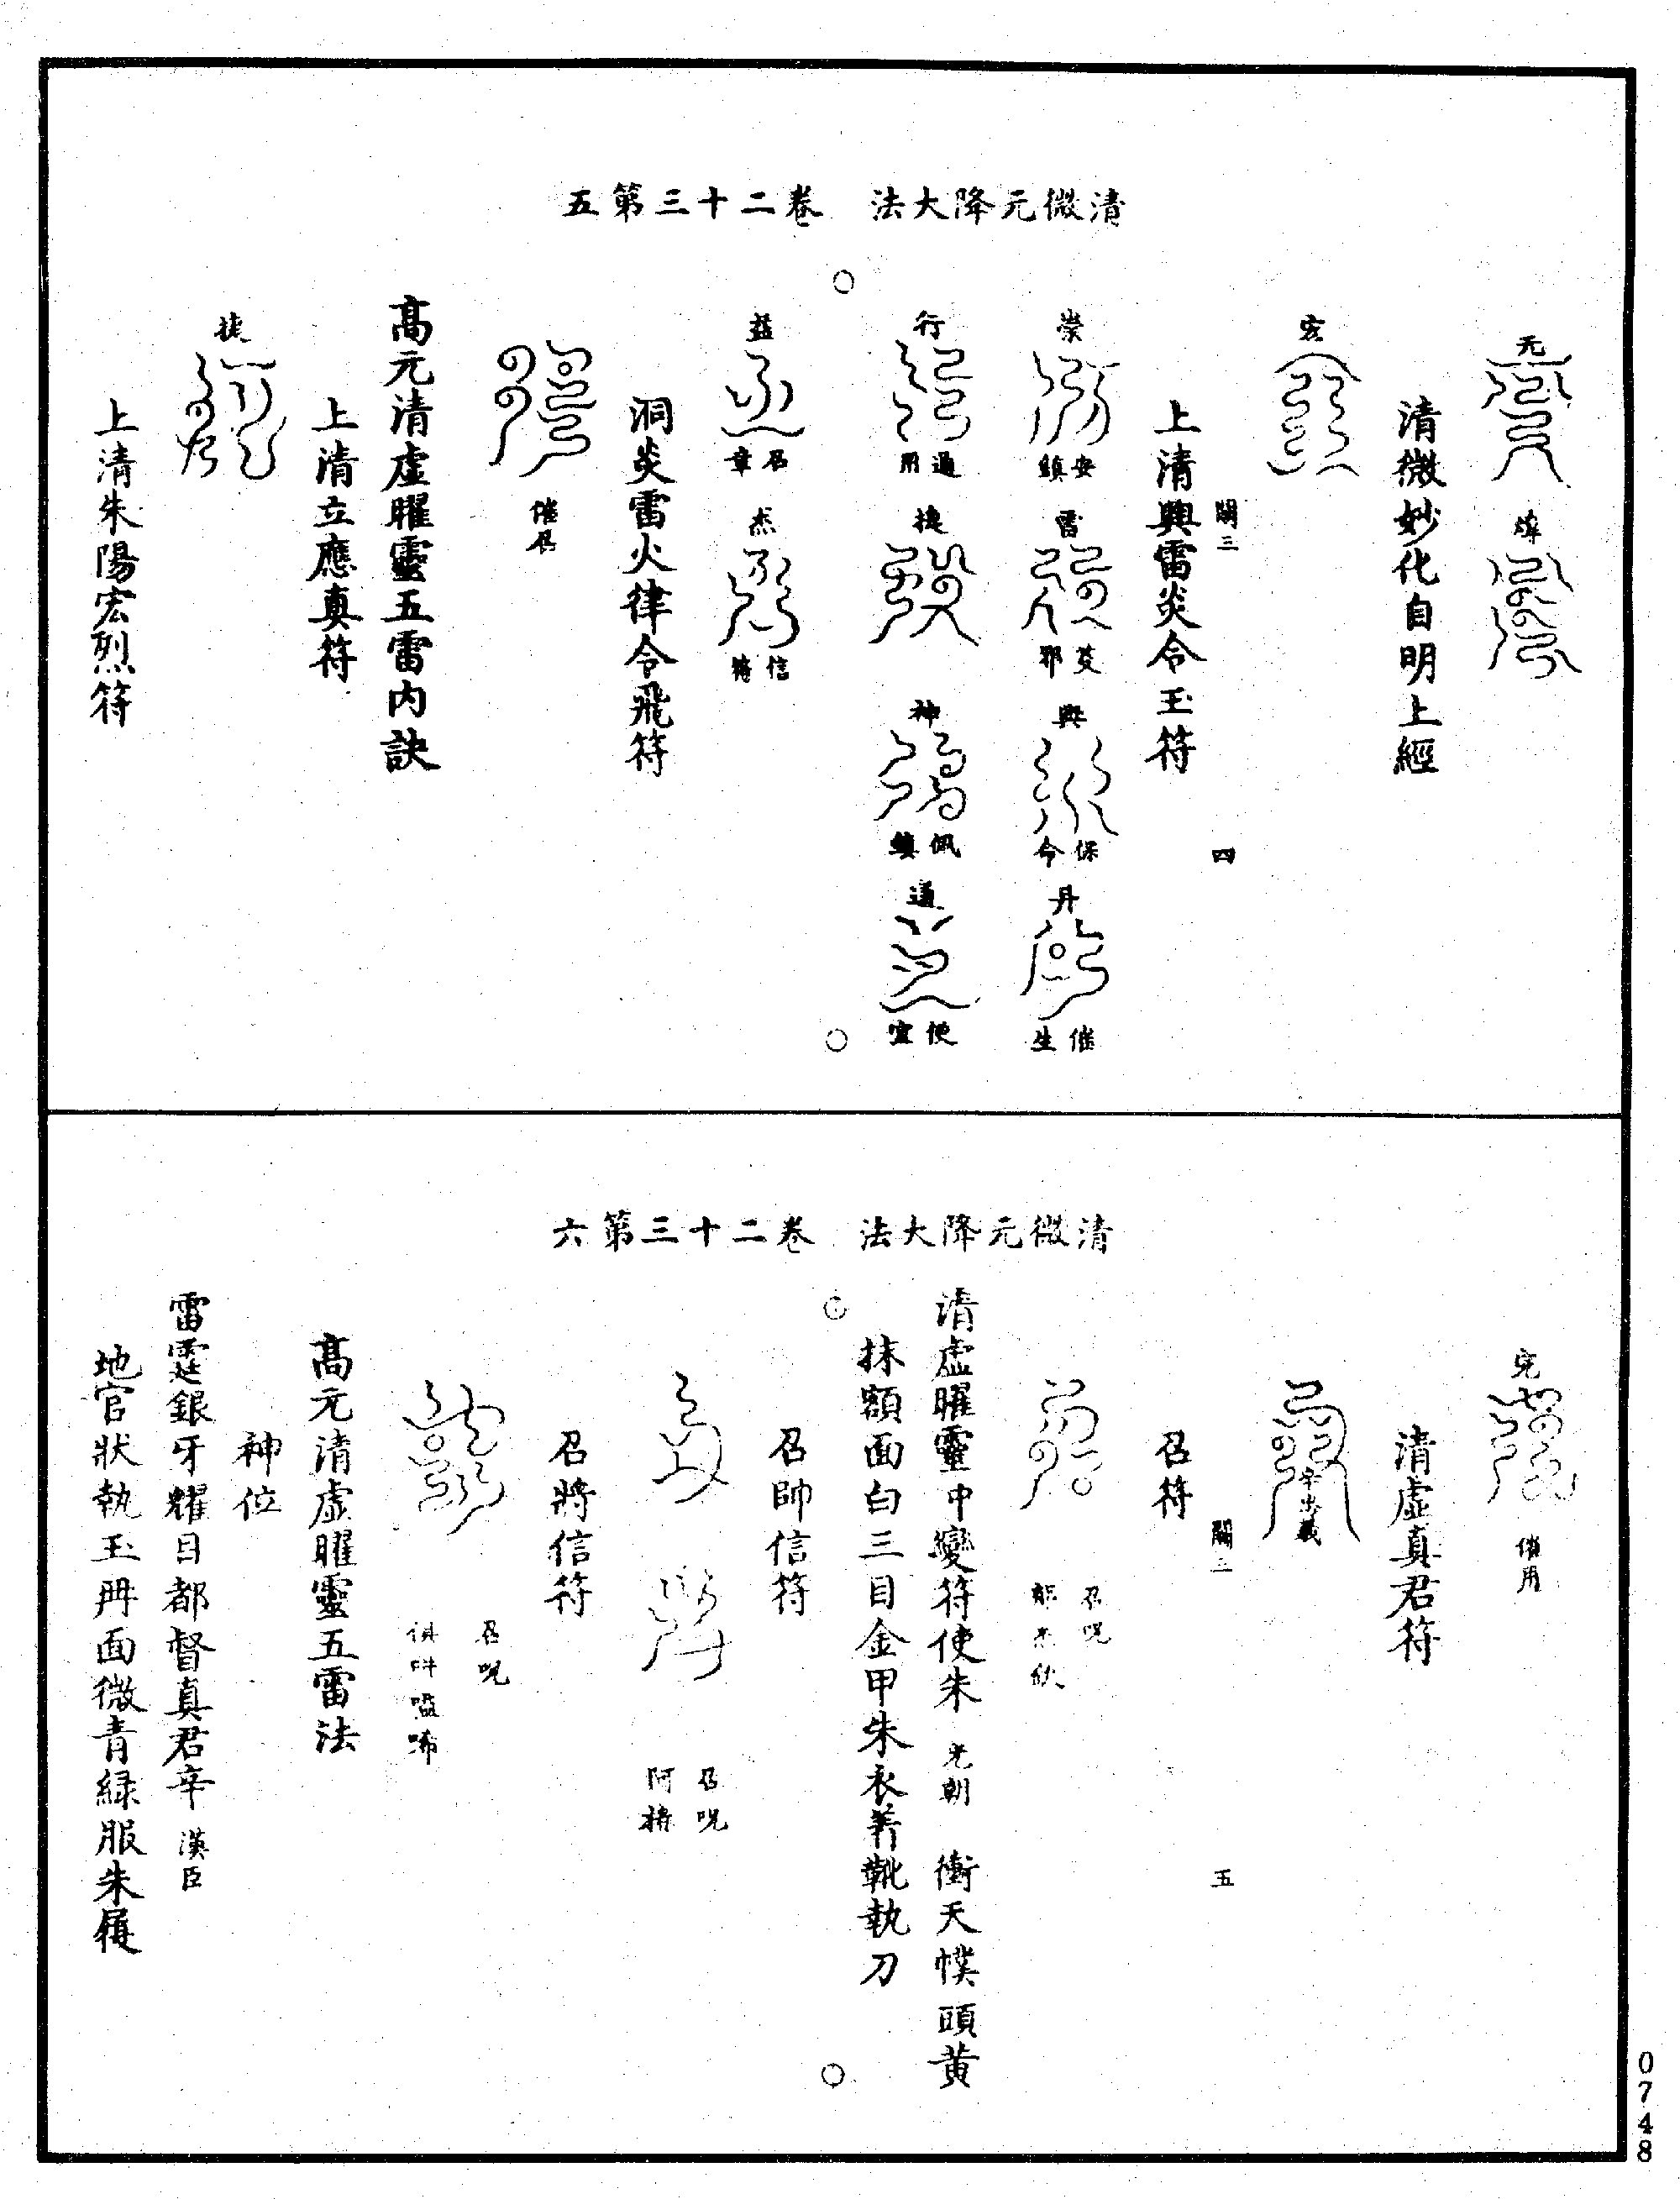 清微元降大法 卷二十三第五
元
煒
清微妙化自明上經
宏
關三 四
上清興雷炎令玉符
崇
安鎮
雷
炎
興
保命
丹
催生
行
通用
捷
神
佩鎮
通
便宜
益
召章
杰
信
洞炎雷火律令飛符
催召
高元清虛曜靈五雷內訣
上清立應真符
捷
上清朱陽宏烈符
清微元降大法 卷二十三第六
催用
清虛真君符
關三 五
召符
召呪
清虛曜靈中變符使朱 光朝 衝天幞頭黃
抹額面白三目金甲朱衣著靴執刀
召帥信符
召呪
召將信符
召呪
高元清虛曜靈五雷法
神位
雷霆銀牙耀目都督真君辛 漢臣
地官狀執玉冊面微青綠服朱履
0748